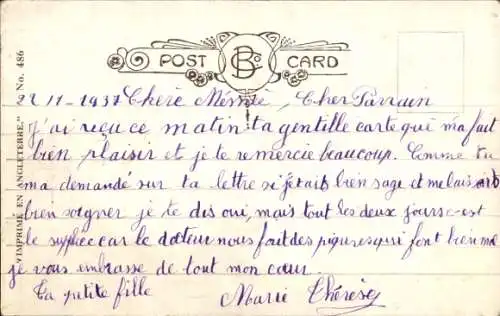 POST CARD
BCo
"IMPRIMÉ EN ANGLETERRE." No. 486
22 11 - 1937 Chère Mémé, Cher Parrain
J'ai reçue ce matin ta gentille carte que m'a fait
bien plaisir et je te remercie beaucoup. Comme tu
ma demandé sur ta lettre si jetais bien sage et me lais
bien soigner je te dis oui, mais tout les deux jours c-est
le supplice car le docteur nous fait des piqures qui font bien mal
je vous embrasse de tout mon cœur.
Ta petite fille
Marie Thérèse